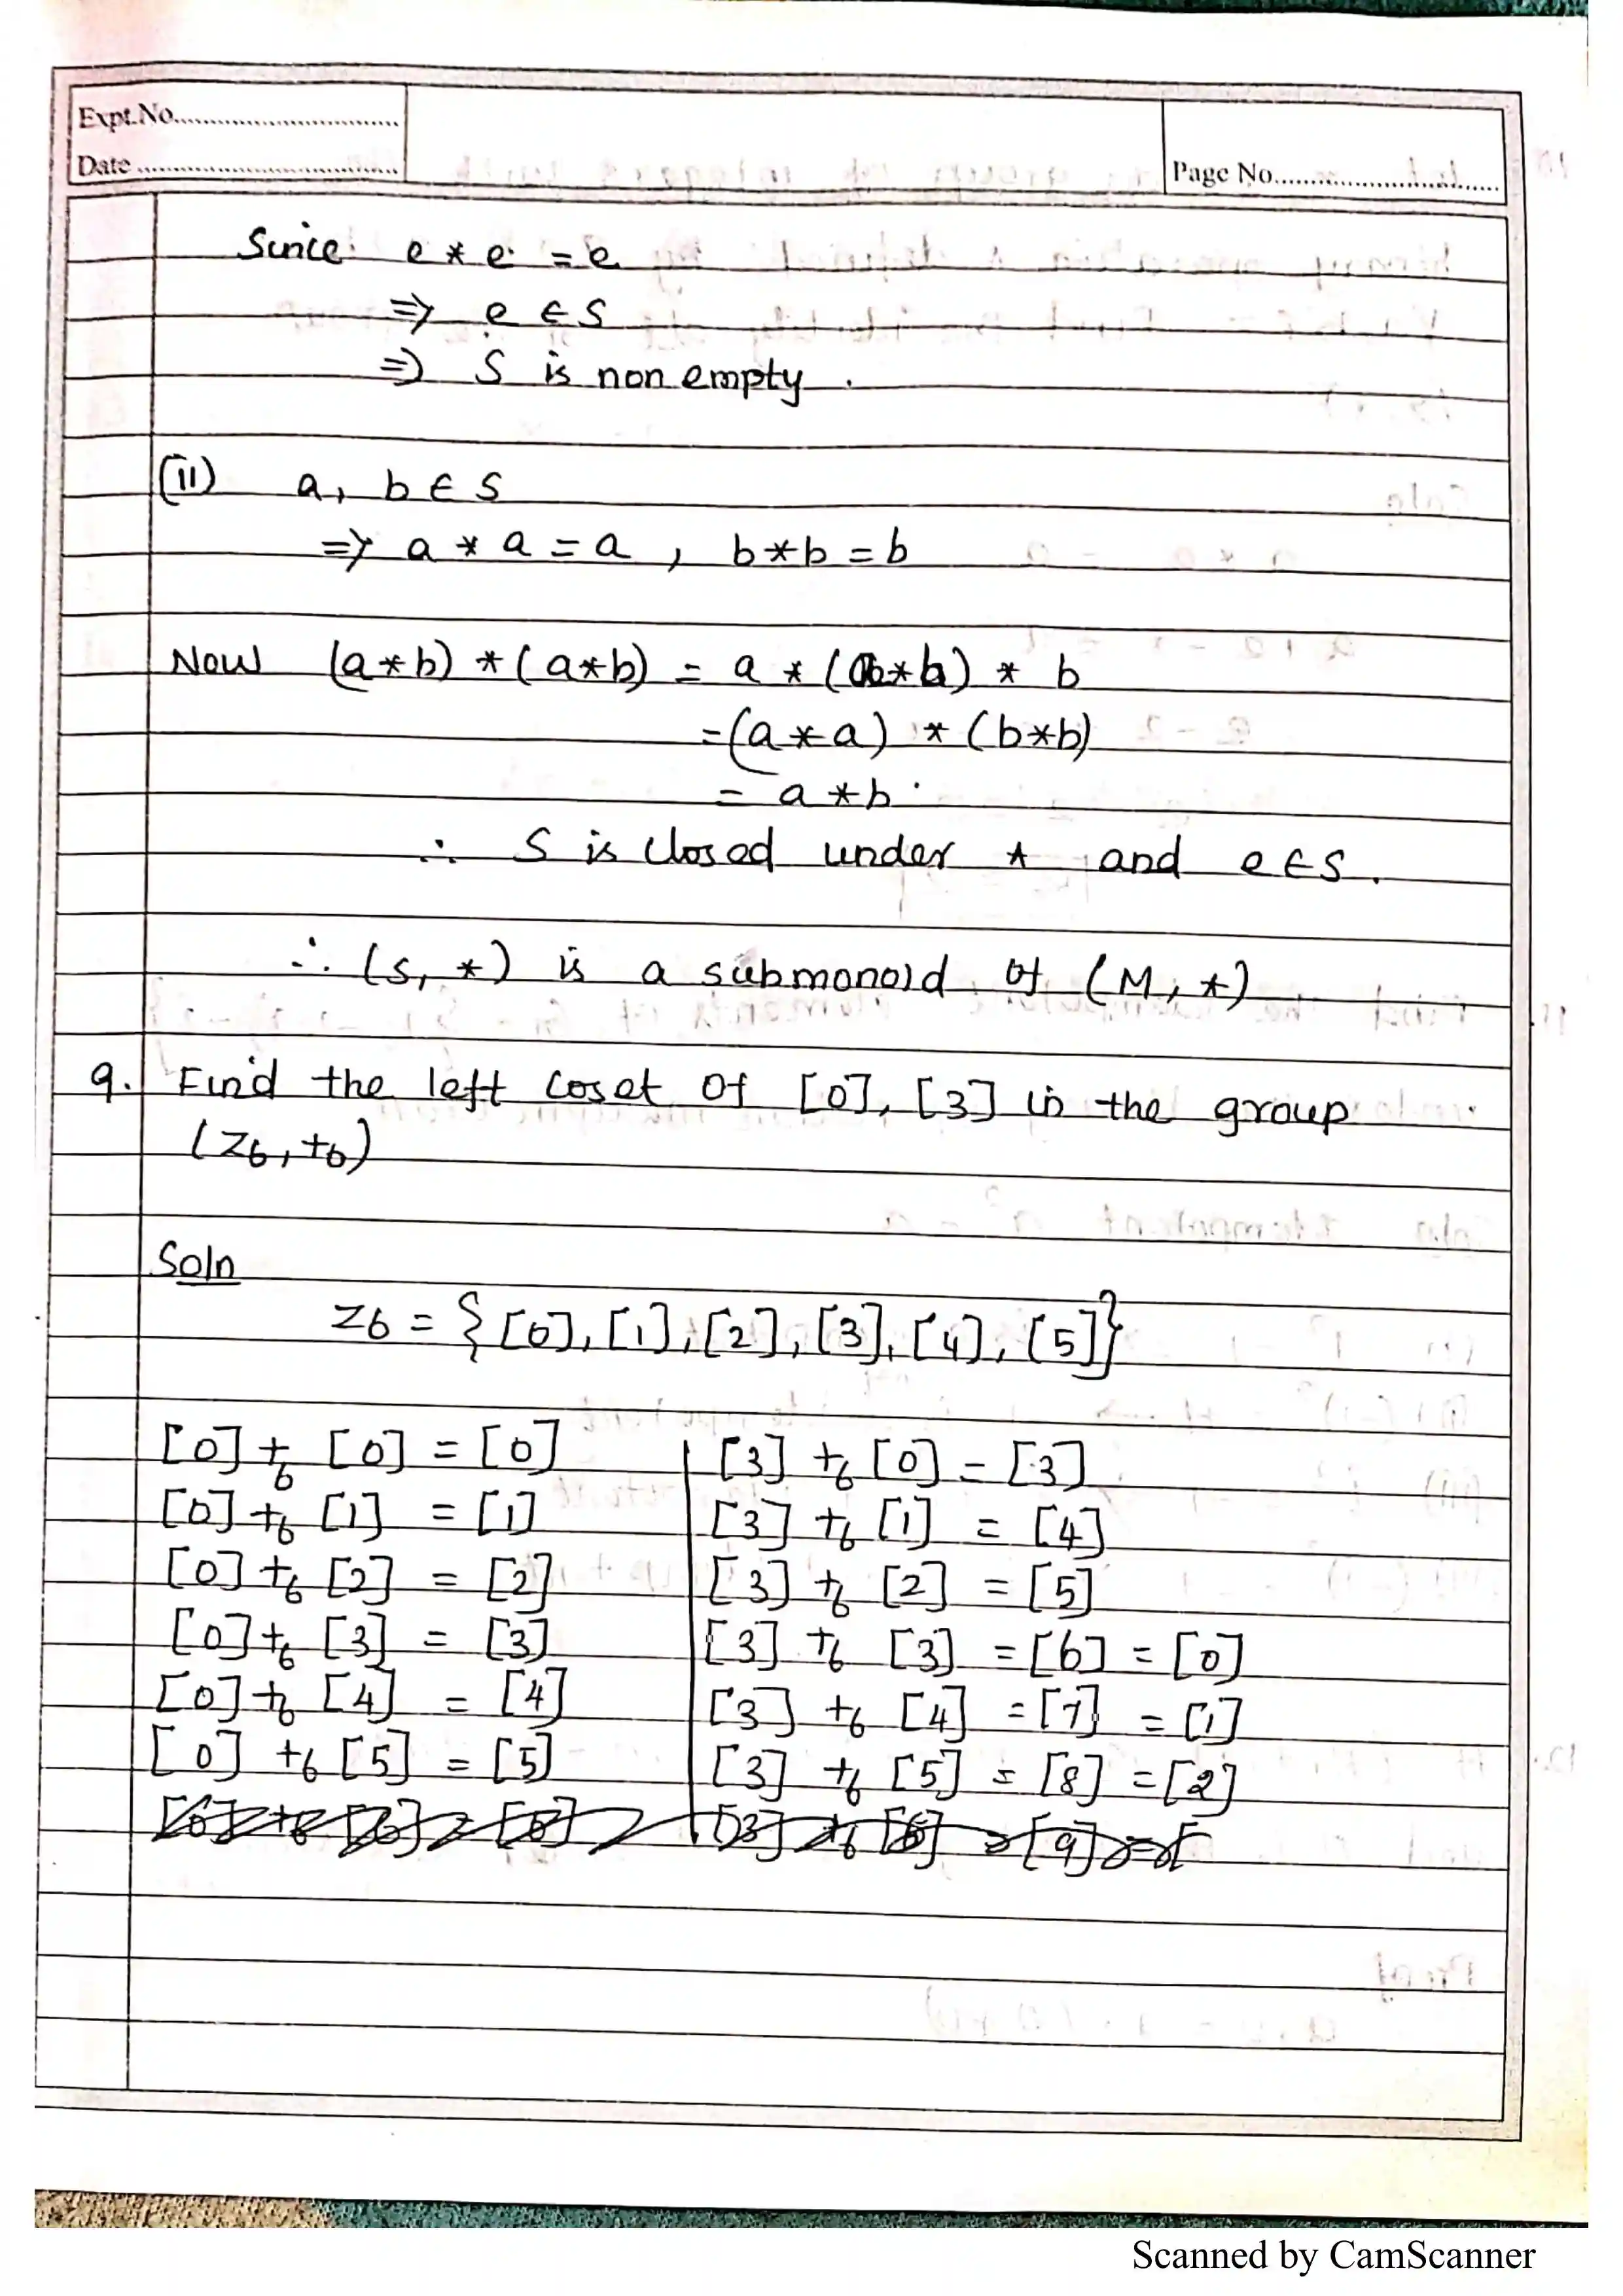 Expt.No.
Date
Page No.
Since e * e = e
⇒ e ∈ S
⇒ S is non empty.
(ii) a, b ∈ S
⇒ a * a = a , b * b = b
Now (a * b) * (a * b) = a * ( * ) * b
= (a * a) * (b * b)
= a * b.
∴ S is closed under * and e ∈ S.
∴ (S, *) is a submonoid of (M, *)
9. Find the left coset of [0], [3] in the group
(Z6, +6)
Soln
Z6 = {[0], [1], [2], [3], [4], [5]}
[0] +6 [0] = [0] | [3] +6 [0] = [3]
[0] +6 [1] = [1] | [3] +6 [1] = [4]
[0] +6 [2] = [2] | [3] +6 [2] = [5]
[0] +6 [3] = [3] | [3] +6 [3] = [6] = [0]
[0] +6 [4] = [4] | [3] +6 [4] = [7] = [1]
[0] +6 [5] = [5] | [3] +6 [5] = [8] = [2]
Scanned by CamScanner